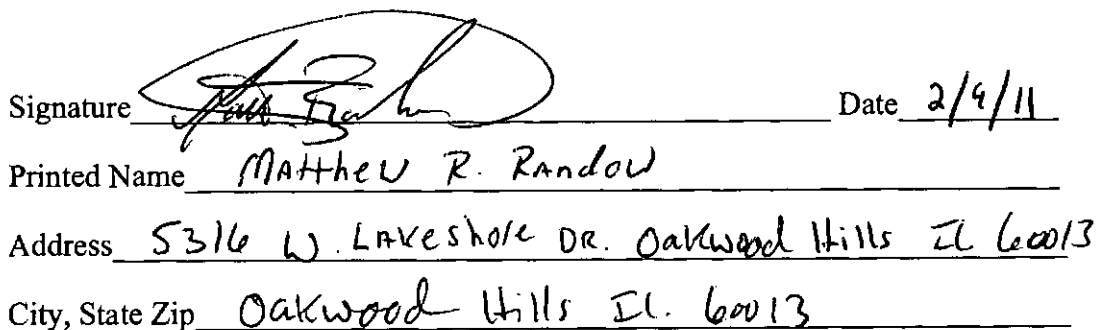 Signature Date 2/9/11
Printed Name Matthew R. Randow
Address 5316 W. Lakeshore DR. Oakwood Hills IL 60013
City, State Zip Oakwood Hills Il. 60013